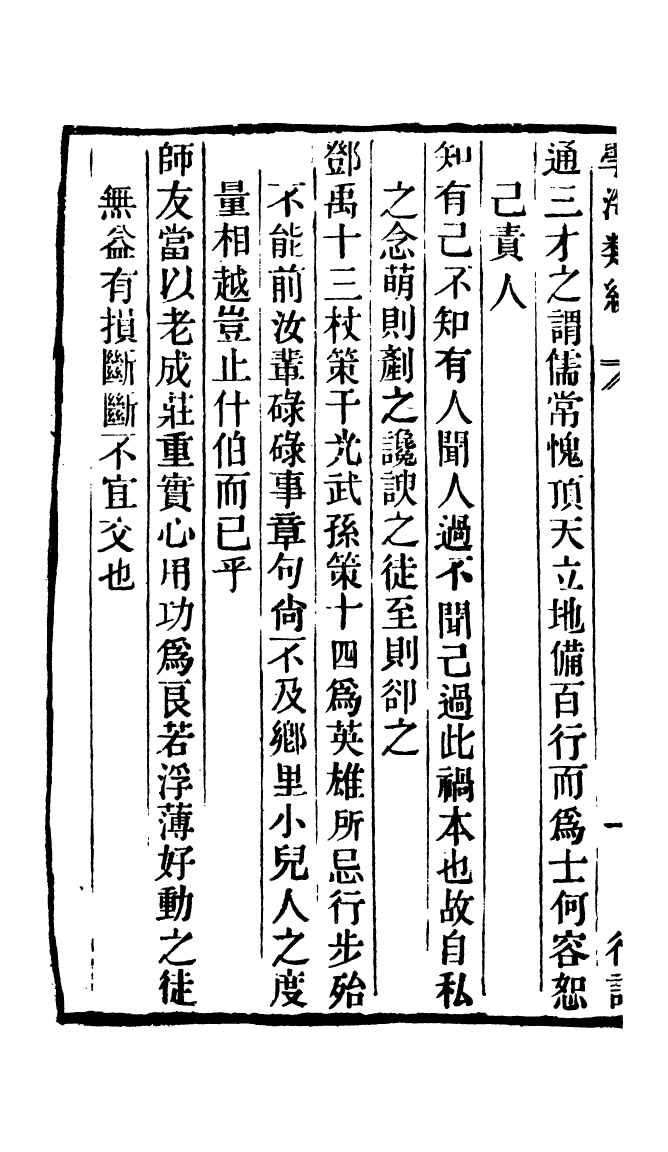 學海類編
一
行誼
通三才之謂儒常愧頂天立地備百行而爲士何容恕
己責人
知有己不知有人聞人過不聞己過此禍本也故自私
之念萌則剷之讒諛之徒至則卻之
鄧禹十三杖策干光武孫策十四爲英雄所忌行步殆
不能前汝輩碌碌事章句尙不及鄉里小兒人之度
量相越豈止什伯而已乎
師友當以老成莊重實心用功爲良若浮薄好動之徒
無益有損斷斷不宜交也